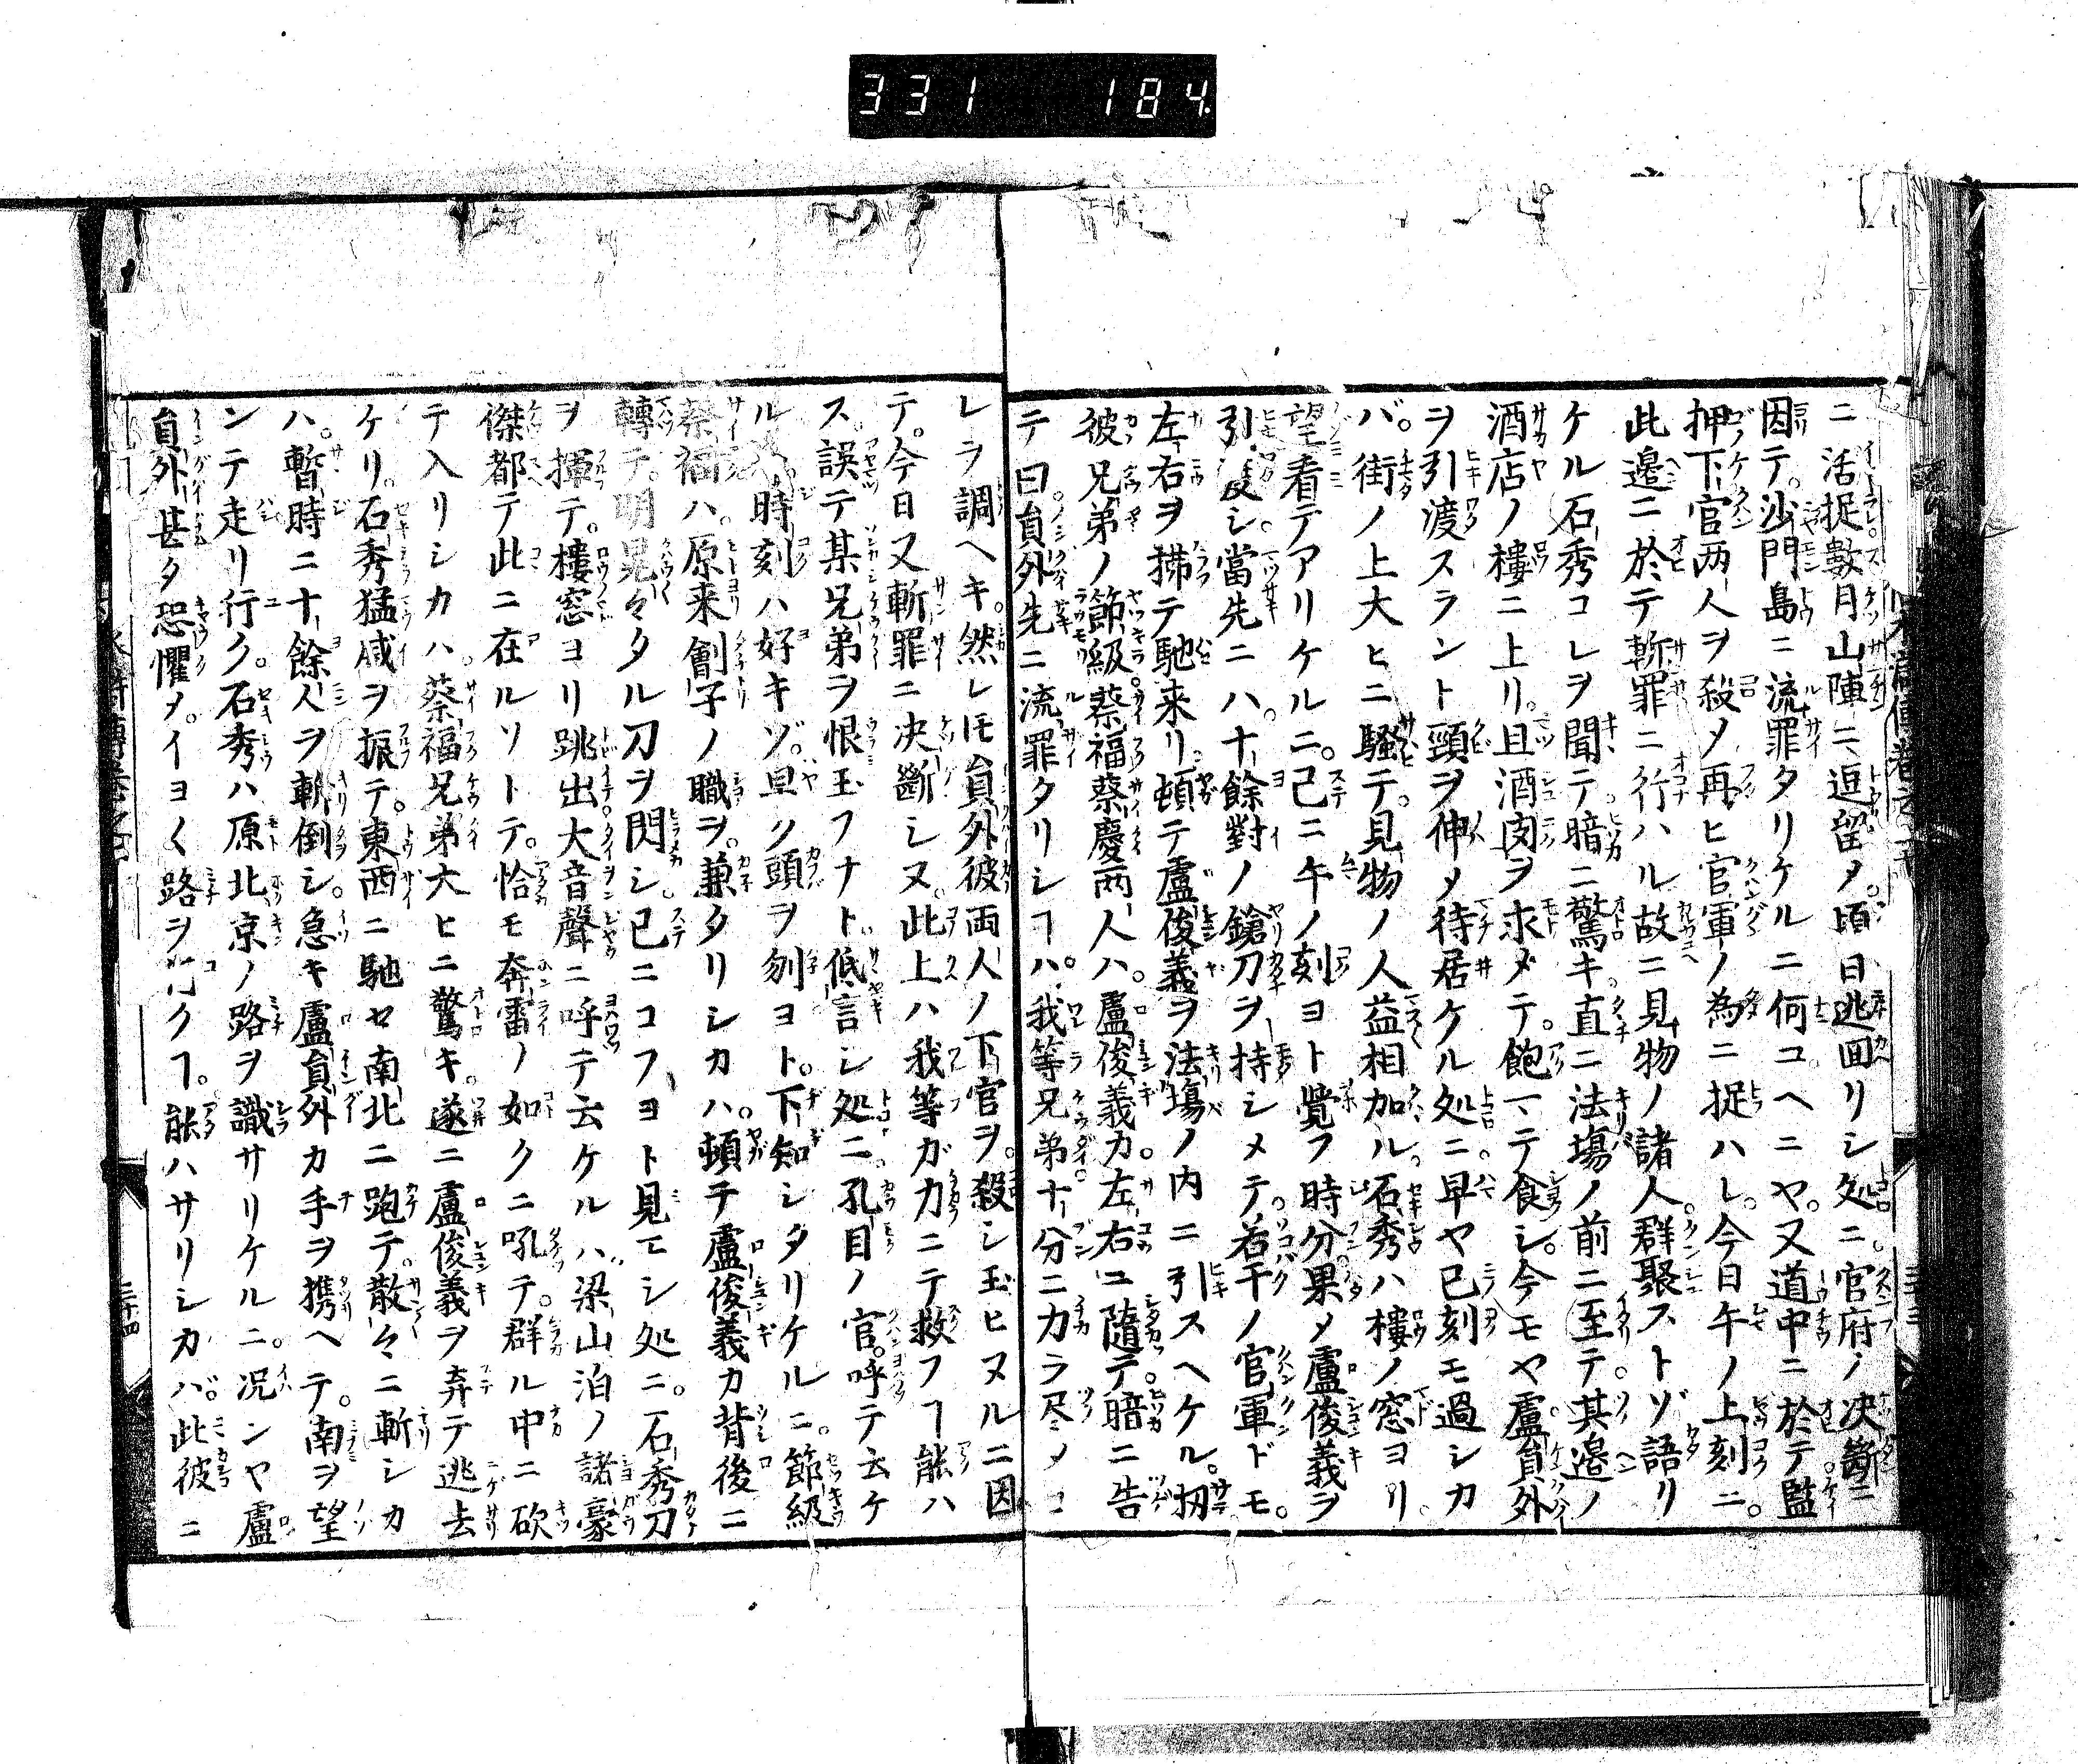 331 184
ニ活捉數月山陣ニ逗留メ。頃日逃囬リシ処ニ。官府ノ决斷ニ
因テ。沙門島ニ流罪タリケルニ何コヘニヤ。又道中ニ於テ監
押下官两人ヲ殺メ再ヒ官軍ノ為ニ捉ハレ。今日午ノ上刻ニ。
此邉ニ於テ斬罪ニ行ハル故ニ見物ノ諸人。群聚ストゾ語リ
ケル石秀コレヲ聞テ暗ニ驚キ。直ニ法塲ノ前ニ至テ。其邉ノ
酒店ノ樓ニ上リ。且酒肉ヲ求メテ。飽マテ食シ。今モヤ盧員外
ヲ引渡スラント頸ヲ伸メ待居ケル処ニ早ヤ巳刻モ過シカ
バ。街ノ上大ヒニ騒テ。見物ノ人益相加ル。石秀ハ樓ノ窓ヨリ
望看テアリケルニ。已ニ午ノ刻ヨト覺フ時分。果メ盧俊義ヲ
引渡シ。當先ニハ。十餘對ノ鎗刀ヲ持シメテ。若干ノ官軍ドモ。
左右ヲ拂テ馳来リ。頓テ盧俊義ヲ法塲ノ内ニ引スヘケル。扨
彼兄弟ノ節級。蔡福蔡慶两人ハ。盧俊義カ。左右ニ隨テ。暗ニ告
テ曰。員外先ニ流罪タリシヿハ。我等兄弟十分ニ力ラ尽メコ
レヲ調ヘキ。然レ𪜈員外彼両人ノ下官ヲ。殺シ玉ヒヌルニ因
テ。今日又斬罪ニ决斷シヌ。此上ハ我等ガ力ニテ救フヿ能ハ
ス。誤テ某兄弟ヲ恨玉フナト。低言シ処ニ。孔目ノ官。呼テ云ケ
ルハ。時刻ハ好キゾ。早ク頭ヲ刎ヨト。下知シタリケルニ。節級
蔡福ハ。原来劊子ノ職ヲ。兼タリシカハ。頓テ盧俊義カ背後ニ
轉テ。明晃々タル刀ヲ閃シ已ニコフヨト見ヱシ処ニ。石秀刀
ヲ揮テ。樓窓ヨリ跳出大音聲ニ呼テ云ケルハ梁山泊ノ諸豪
傑都テ此ニ在ルソトテ。恰モ奔雷ノ如クニ吼テ。群ル中ニ砍
テ入リシカハ。蔡福兄弟大ヒニ驚キ。遂ニ盧俊義ヲ弃テ逃去
ケリ。石秀猛威ヲ振テ。東西ニ馳セ南北ニ跑テ。散々ニ斬シカ
ハ。暫時ニ十餘人ヲ斬倒シ。急キ盧員外カ手ヲ携ヘテ。南ヲ望
ンテ走リ行ク。石秀ハ原北京ノ路ヲ識サリケルニ。况ンヤ盧
員外甚タ恐懼メ。イヨ〱路ヲ行クヿ。能ハサリシカバ。此彼ニ